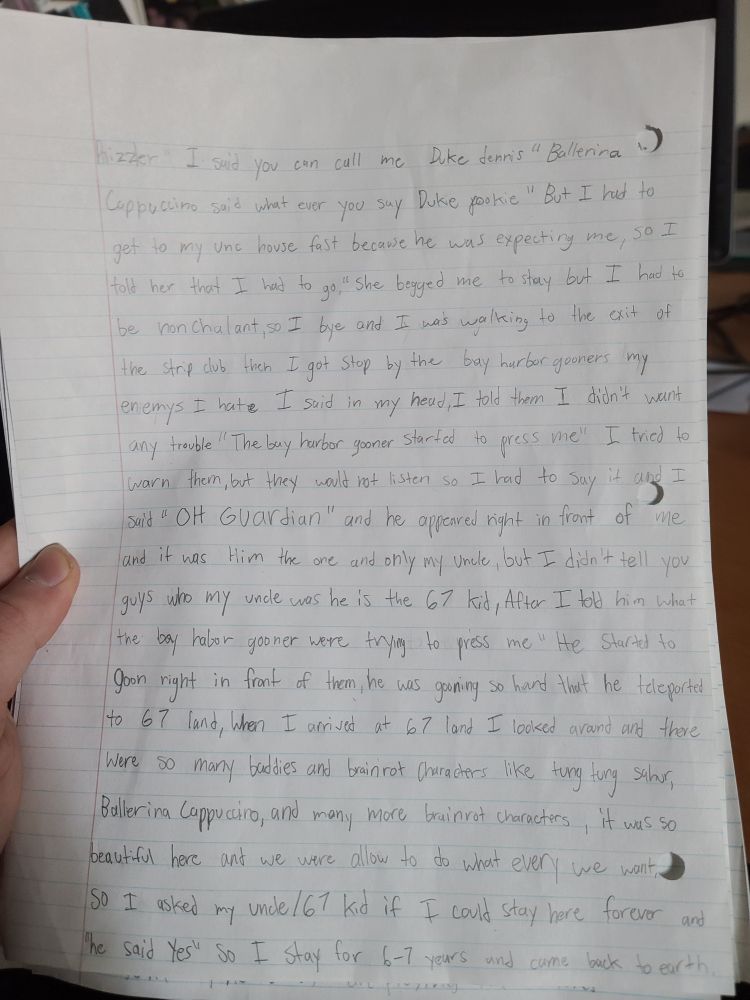 Rizzler" I said you can call me Duke dennis "Ballerina
Cappuccino said what ever you say Duke pookie" But I had to
get to my unc house fast because he was expecting me, so I
told her that I had to go," She begged me to stay but I had to
be non Chalant, so I bye and I was walking to the exit of
the strip club then I got Stop by the bay harbor gooners my
enemys I hate I said in my head, I told them I didn't want
any trouble "The bay harbor gooner Started to press me" I tried to
warn them, but they would not listen so I had to say it and I
said "OH GUardian" and he appeared right in front of me
and it was Him the one and only my Uncle, but I didn't tell you
guys who my uncle was he is the 67 kid, After I told him what
the bay habor gooner were trying to press me" He Started to
goon right in front of them, he was gooning so hard that he teleported
to 67 land, When I arrived at 67 land I looked around and there
Were so many baddies and brainrot Characters like tung tung sahur,
Ballerina Cappuccino, and many more brainrot characters, it was so
beautiful here and we were allow to do what every we want,
So I asked my uncle/67 kid if I could stay here forever and
"he said Yes" So I Stay for 6-7 years and came back to earth.